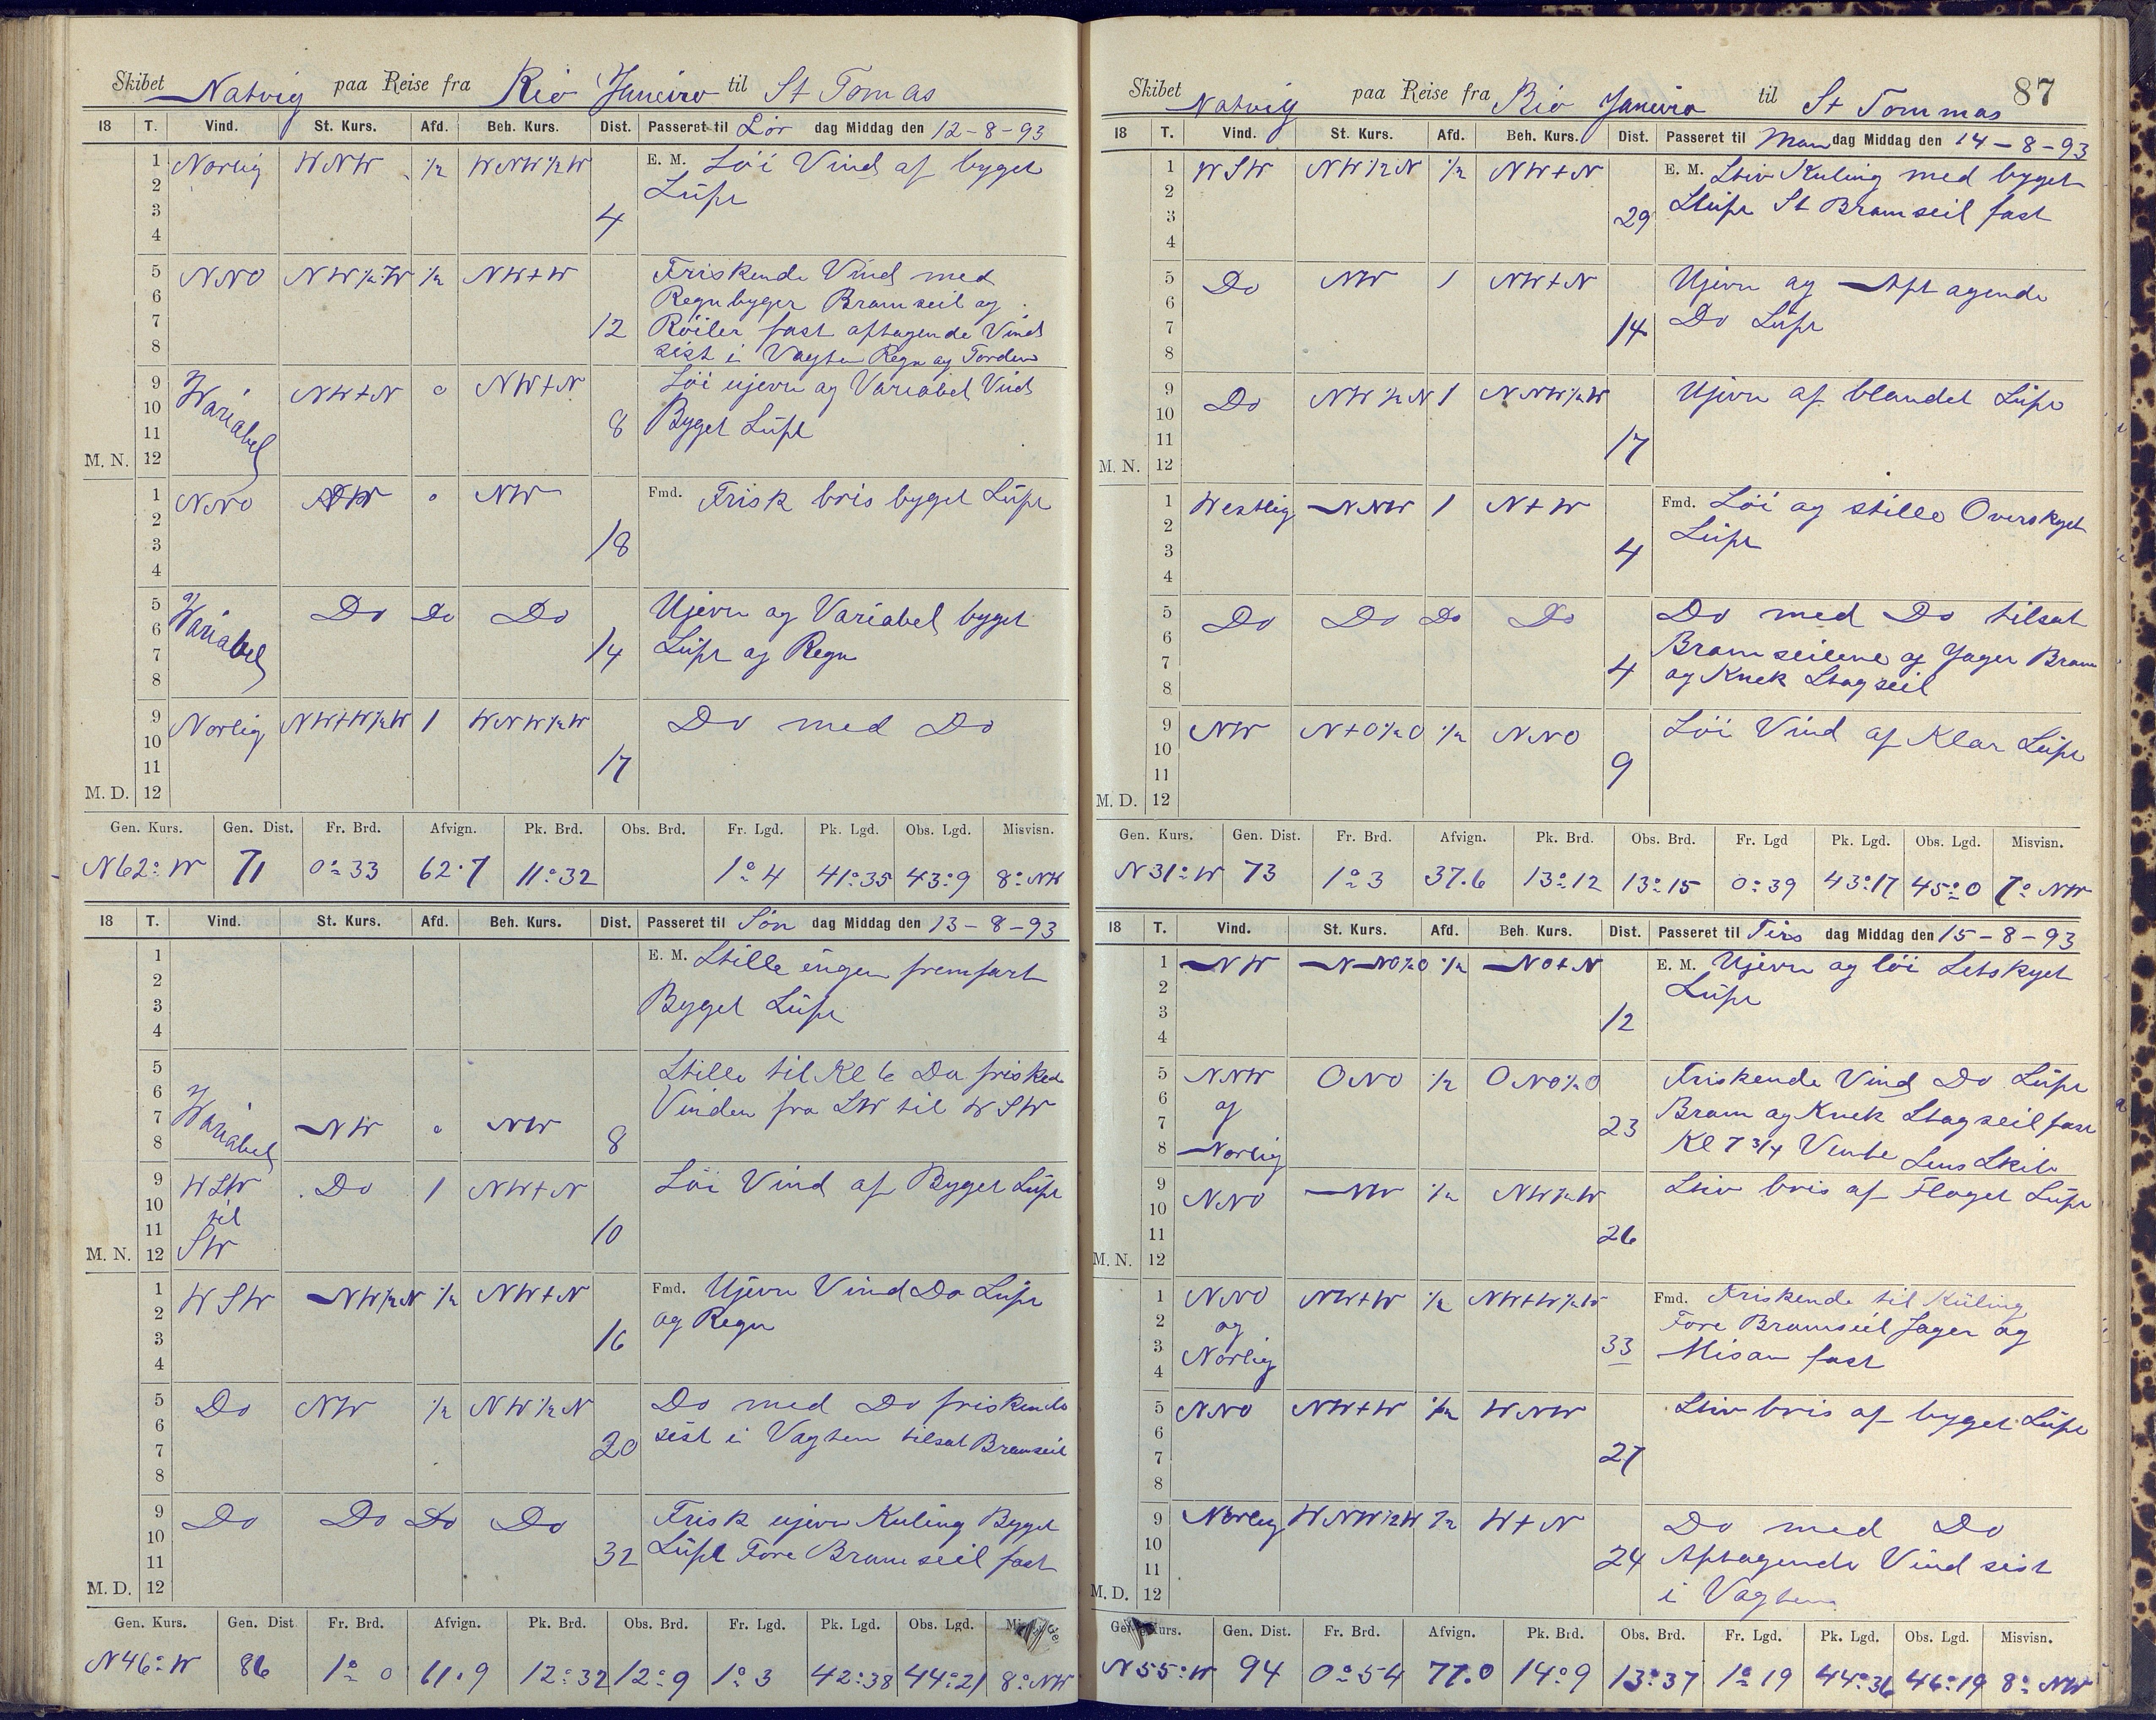 Skibet Natvig paa Reise fra Rio Janeiro til St Tomas
18 T. Vind. St. Kurs. Afd. Beh. Kurs. Dist. Passeret til Lör dag Middag den 12-8-93
1 Norlig WNW 1/2 WNW1/2W E. M. Löi Vind af byget
2 Lüft
3 4
4
5 NNO NW1/2W 1/2 NW+W Friskende Vind med
6 Regnbyger Bramseil og
7 12 Röiler fast aftagende Vind
8 sist i Vagten Regn og Torden
9 Wariabel NW+N 0 NW+N Löi ujevn og Variabel Vind
10 8 Byget Lüft
11
M. N. 12
1 NNO NW 0 NW Fmd. Frisk bris byget Lüft
2
3 18
4
5 Wariabel Do Do Do Ujevn og Variabel byget
6
7 14 Lüft og Regn
8
9 Norlig NW+W1/2W 1 WNW1/2W Do med Do
10
11 17
M. D. 12
Gen. Kurs. Gen. Dist. Fr. Brd. Afvign. Pk. Brd. Obs. Brd. Fr. Lgd. Pk. Lgd. Obs. Lgd. Misvisn.
N62°W 71 0°33 62.7 11°32 1°4 41°35 43°9 8°NW
18 T. Vind. St. Kurs. Afd. Beh. Kurs. Dist. Passeret til Sön dag Middag den 13-8-93
1 E. M. Stille ingen fremfart
2
3 Byget Lüft
4
5 Stille til Kl 6 Da frisked
6 Wariabel Vinden fra SW til WSW
7 NW 0 NW 8
8
9 WSW Do 1 NW+N Löi Vind af Byget Lüft
10 til
11 SW 10
M. N. 12
1 WSW NW1/2N 1/2 NW+N Fmd. Ujevn Vind Do Lüft
2 og Regn
3 16
4
5 Do NW 1/2 NW1/2N Do med Do friskende
6 20 sist i Vagten tilsat Bramseil
7
8
9 Do Do Do Do Frisk ujevn Kuling Byget
10
11 32 Lüft Fore Bramseil fast
M. D. 12
Gen. Kurs. Gen. Dist Fr. Brd. Afvign. Pk. Brd. Obs. Brd. Fr. Lgd. Pk. Lgd. Obs. Lgd.
N46°W 86 1°0 61.9 12°32 12°9 1°3 42°38 44°21 8°NW
87
Skibet Natvig paa Reise fra Rio Janeiro til St Tommas
18 T. Vind. St. Kurs. Afd. Beh. Kurs. Dist. Passeret til Man dag Middag den 14-8-93
1 WSW NW1/2N 1/2 NW+N E. M. Stiv Kuling med byget
2
3 29 Lüft St Bramseil fast
4
5 Do NW 1 NW+N Ujevn og Aftagende
6
7 14 Do Lüft
8
9 Do NW1/2N 1 NNW1/2W Ujevn af blandet Lüft
10
11 17
M. N. 12
1 Westlig NNW 1 N+W Fmd. Löi og stille Overskyet
2 Lüft
3 4
4
5 Do Do Do Do Do med Do tilsat
6 Bramseilene og Jager Bram
7 4 og Knek Stagseil
8
9 NW N+O1/2O 1/2 NNO Löi Vind af Klar Lüft
10
11 9
M. D. 12
Gen. Kurs. Gen. Dist. Fr. Brd. Afvign. Pk. Brd. Obs. Brd. Fr. Lgd Pk. Lgd. Obs. Lgd. Misvisn.
N31°W 73 1°3 37.6 13°12 13°15 0°39 43°17 45°0 7°NW
18 T. Vind. St. Kurs. Afd. Beh. Kurs. Dist. Passeret til Tirs dag Middag den 15-8-93
1 NW NNO1/2O 1/2 NO+N E. M. Ujevn og löi Letskyet
2 Lüft
3 12
4
5 NNW ONO 1/2 ONO1/2O Friskende Vind Do Lüft
6 og Bram og Knek Stagseil fast
7 23
8 Norlig Kl 7 3/4 Vendte Lens Skib
9 NNO NW 1/2 NW1/2W Stiv bris af Flaget Lüft
10
11 26
M. N. 12
1 NNO NW+W 1/2 NW+W1/2W Fmd. Friskende til Küling
2 og Fore Bramseil Jager og
3 Norlig 33 Misan fast
4
5 NNO NW+W 1/2 WNW Stiv bris af byget Lüft
6
7 27
8
9 Norlig WNW1/2W 1/2 W+N Do med Do
10
11 24 Aftagende Vind sist
M. D. 12 i Vagten
Gen. Kurs. Gen. Dist. Fr. Brd. Afvign. Pk. Brd. Obs. Brd. Fr. Lgd. Pk. Lgd. Obs. Lgd. Misvisn.
N55°W 94 0°54 77.0 14°9 13°37 1°19 44°36 46°19 8°NW